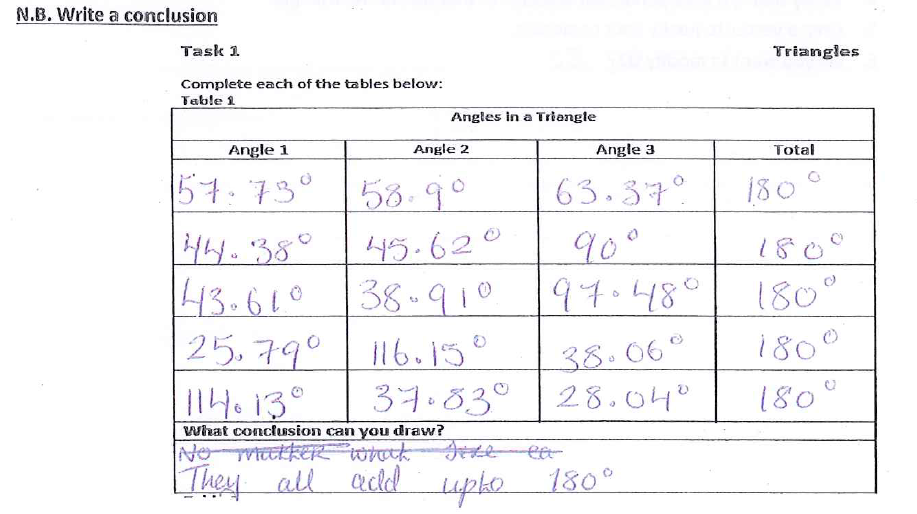 N.B. Write a conclusion
Task 1 Triangles
Complete each of the tables below:
Table 1
Angles in a Triangle
Angle 1 Angle 2 Angle 3 Total
57.73° 58.9° 63.37° 180°
44.38° 45.62° 90° 180°
43.61° 38.91° 97.48° 180°
25.79° 116.15° 38.06° 180°
114.13° 37.83° 28.04° 180°
What conclusion can you draw?
No matter what size ea
They all add upto 180°